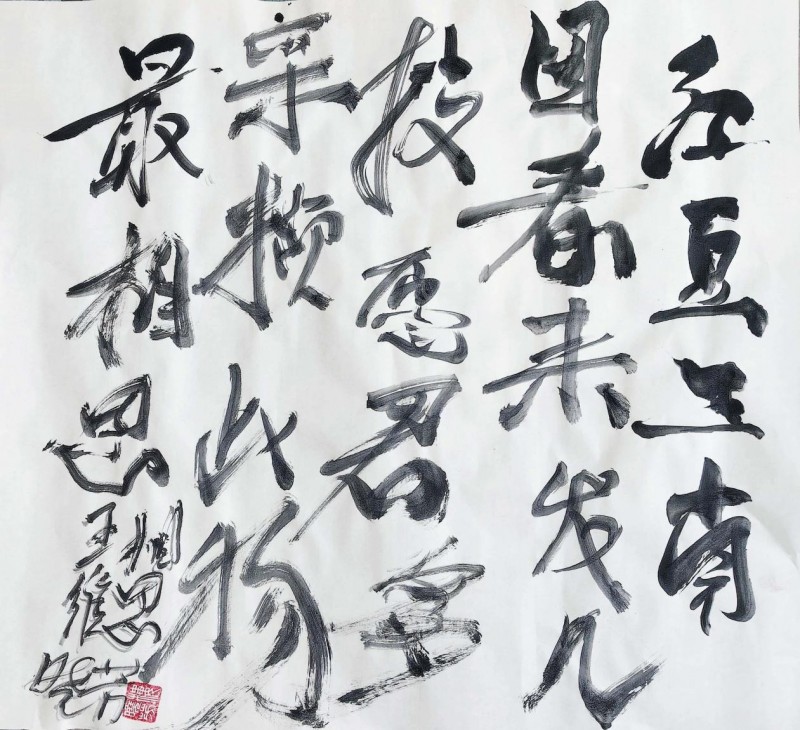 红豆生南
国春来发几
枝愿君
采撷此物
最相思
相思
王维